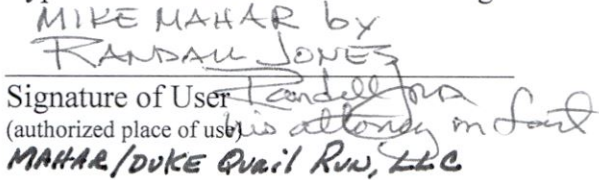 MIKE MAHAR by
RANDALL JONES
Signature of User Randall Jones
(authorized place of use) his attorney in fact
MAHAR/DUKE Quail Run, LLC